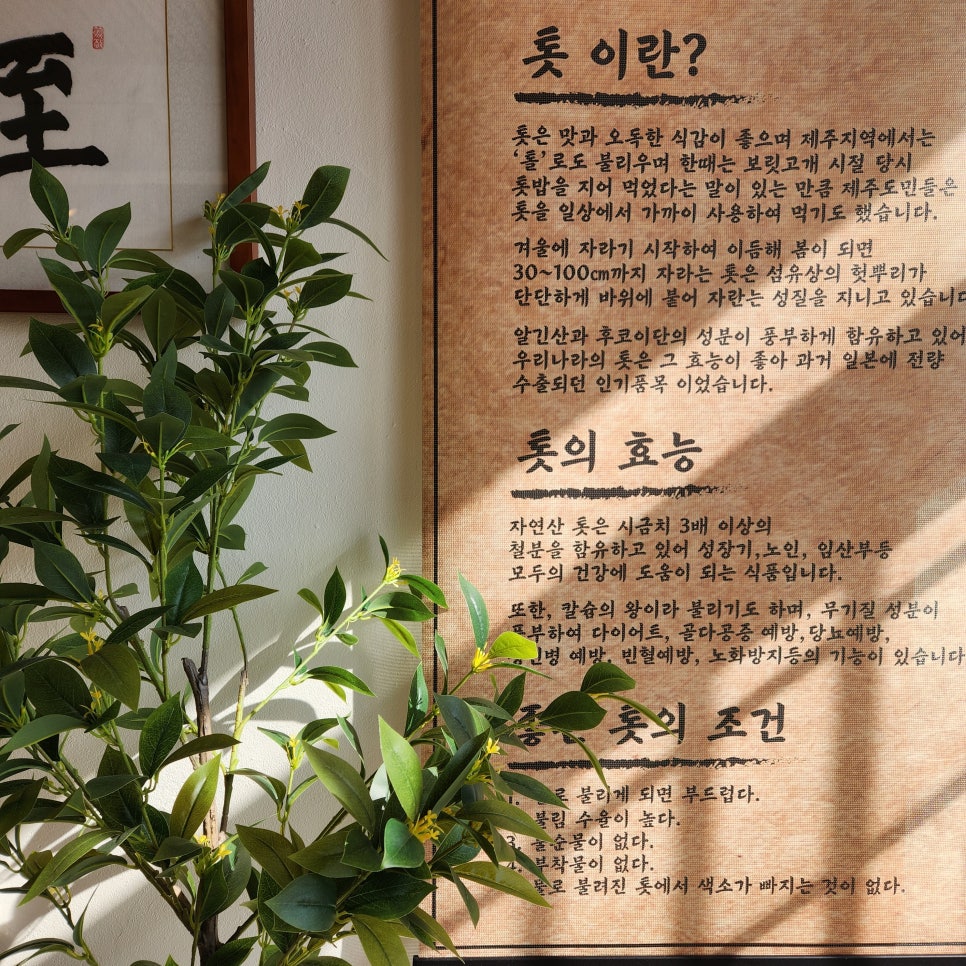 至
톳 이란?
톳은 맛과 오독한 식감이 좋으며 제주지역에서는
'톨'로도 불리우며 한때는 보릿고개 시절 당시
톳밥을 지어 먹었다는 말이 있는 만큼 제주도민들은
톳을 일상에서 가까이 사용하여 먹기도 했습니다.
겨울에 자라기 시작하여 이듬해 봄이 되면
30~100㎝까지 자라는 톳은 섬유상의 헛뿌리가
단단하게 바위에 붙어 자란는 성질을 지니고 있습니다
알긴산과 후코이단의 성분이 풍부하게 함유하고 있어
우리나라의 톳은 그 효능이 좋아 과거 일본에 전량
수출되던 인기품목 이었습니다.
톳의 효능
자연산 톳은 시금치 3배 이상의
철분을 함유하고 있어 성장기,노인, 임산부등
모두의 건강에 도움이 되는 식품입니다.
또한, 칼슘의 왕이라 불리기도 하며, 무기질 성분이
풍부하여 다이어트, 골다공증 예방,당뇨예방,
예방, 빈혈예방, 노화방지등의 기능이 있습니다
톳의 조건
불리게 되면 부드럽다.
불림 수율이 높다.
3. 불순물이 없다.
부착물이 없다.
불려진 톳에서 색소가 빠지는 것이 없다.